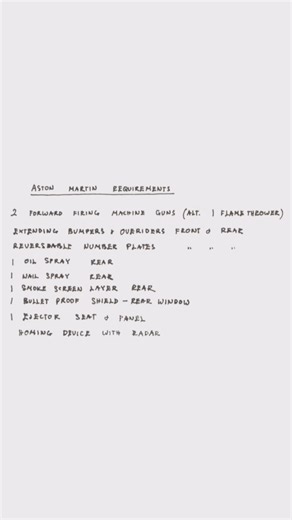 ASTON MARTIN REQUIREMENTS
2 FORWARD FIRING MACHINE GUNS (ALT. 1 FLAME THROWER)
EXTENDING BUMPERS & OVERIDERS FRONT & REAR
REVERSEABLE NUMBER PLATES " " "
1 OIL SPRAY REAR
1 NAIL SPRAY REAR
1 SMOKE SCREEN LAYER REAR
1 BULLET PROOF SHIELD - REAR WINDOW
1 EJECTOR SEAT & PANEL
HOMING DEVICE WITH RADAR